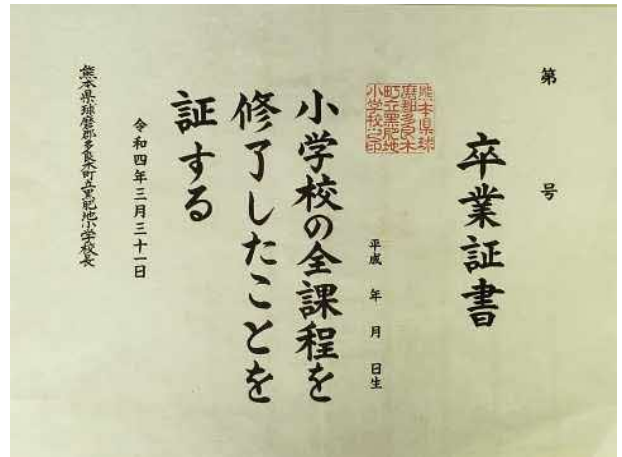 第　号
卒業証書
熊本県球
磨郡多良木
町立黒肥地
小学校之印
平成　年　月　日生
小学校の全課程を
修了したことを
証する
令和四年三月三十一日
熊本県球磨郡多良木町立黒肥地小学校長